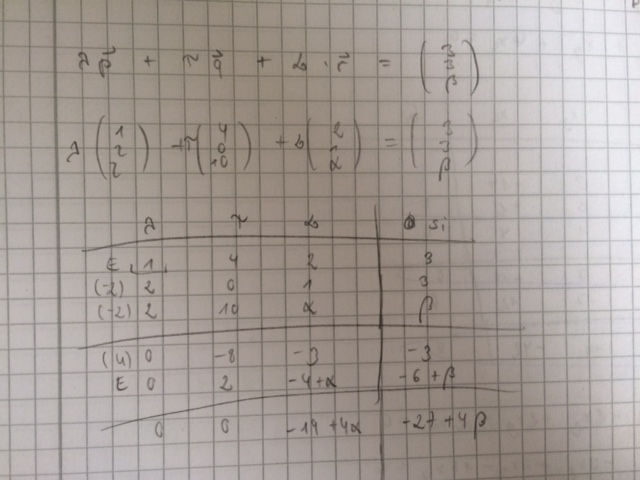 λp⃗ + τq⃗ + s · r⃗ = (3 3 β)
λ(1 2 2) + τ(4 0 10) + s(2 1 α) = (3 3 β)
λ τ s si
E 1 4 2 3
(-2) 2 0 1 3
(-2) 2 10 α β
(4) 0 -8 -3 -3
E 0 2 -4+α -6+β
0 0 -19+4α -27+4β